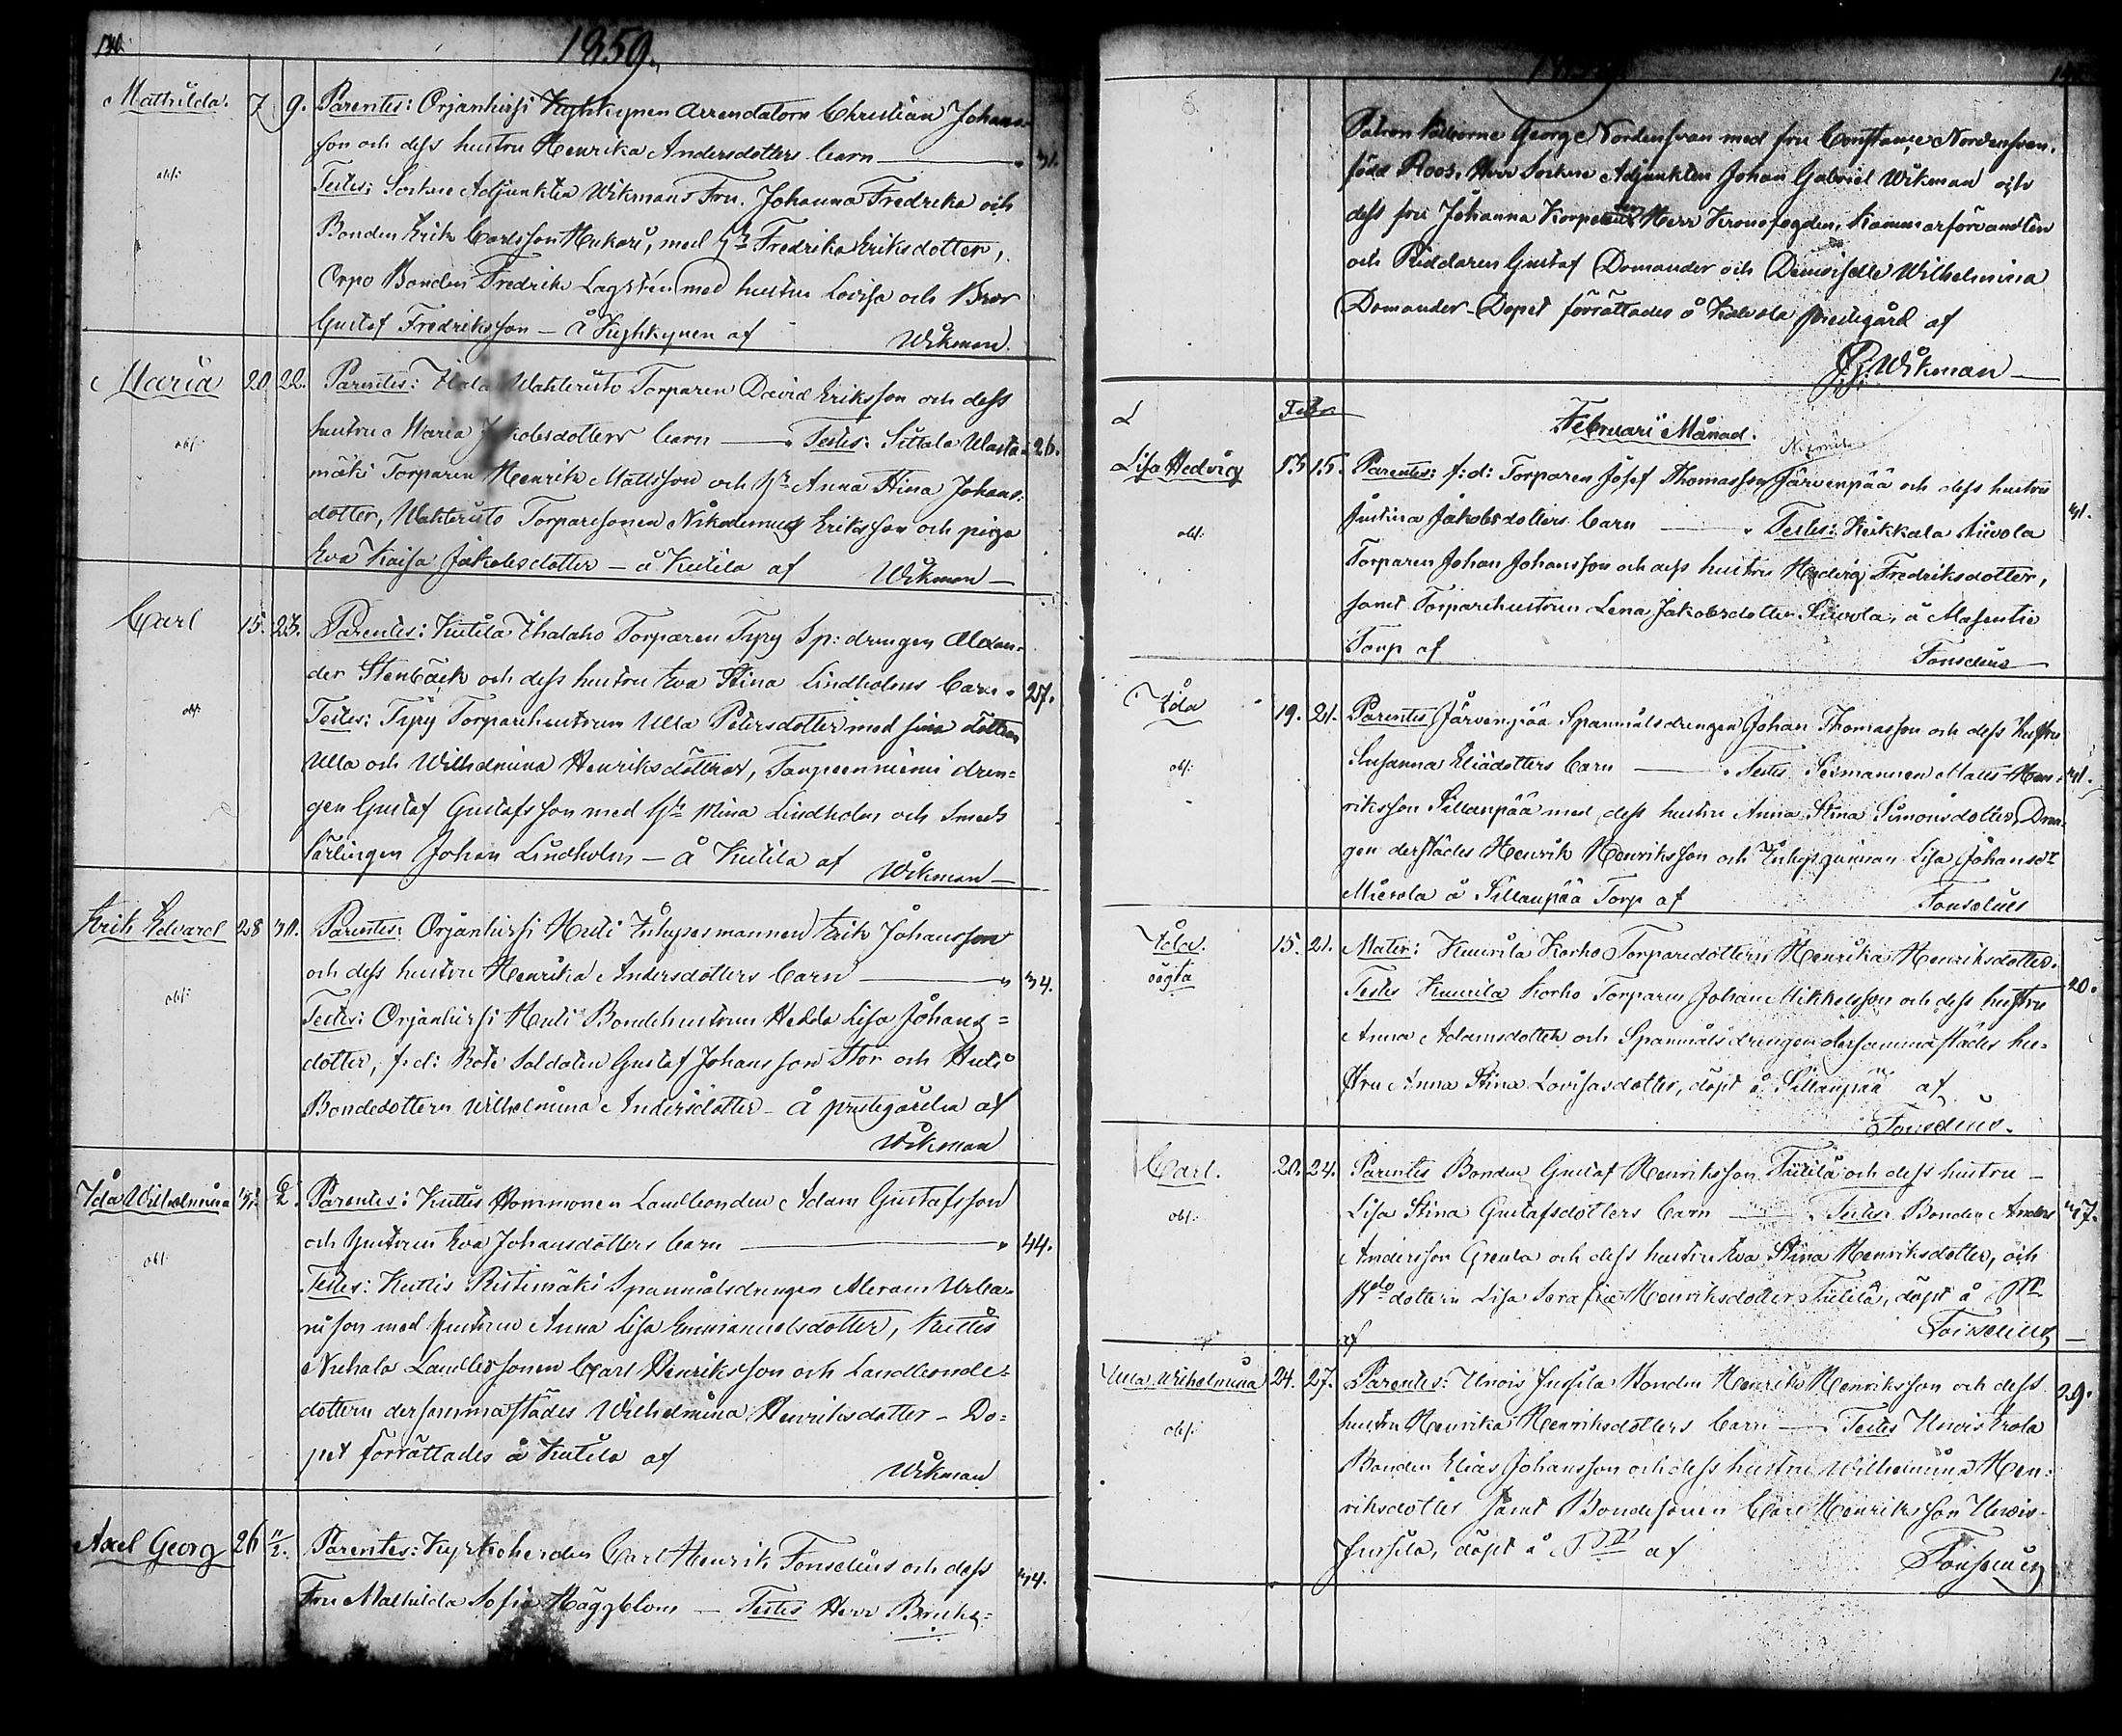 140.
1859.
Mathilda. 7 9. Parentes: Orjanhirsi Kyhkynen Arrendatorn Christian Johans-
son och dess hustru Henrika Andersdotters barn — " 31.
obs: Testes: Sockne Adjunkten Wikmans Fru Johanna Fredrika och
Bonden Erik Carlsson Hukari, med hr Fredrika Eriksdotter,
Orpo Bonden Fredrik Lagstén med hustru Lovisa och Bror
Gustaf Fredriksson — å Kyhkynen af Wikman.
Maria 20. 22. Parentes: Wahteristo Torparen David Eriksson och dess
obs: hustru Maria Jakobsdotters barn — Testes: Sittala 26.
mäki Torparen Henrik Mattsson och hr Anna Stina Johans-
dotter, Wahteristo Torparesonen Nikodemus Eriksson och piga
Eva Kaisa Jakobsdotter — å Kutila af Wikman —
Carl 15. 23. Parentes: Kutila Torparen Typy Sp: drengen Alexan-
der Stenbäck och dess hustru Eva Stina Lindholms barn " 27.
obs: Testes: Typy Torparehustrun Ulla Petersdotter med sina döttrar
Ulla och Wilhelmina Henriksdöttrar, Taupeenniemi dren=
gen Gustaf Gustafsson med hr Mina Lindholm och Smeds
lärlingen Johan Lindholm — å Kutila af Wikman —
Erik Edvard 28 30. Parentes: Orjanhirsi Huti Inhysesmannen Erik Johansson
och dess hustru Henrika Andersdotters barn — " 34.
obs: Testes: Orjanhirsi Huti Bondehustrun Hedda Lisa Johans=
dotter, f:d: Rote Soldaten Gustaf Johansson Stor och Huti
Bondedottern Wilhelmina Andersdotter — å prestgården af
Wikman
Ida Wilhelmina 31/1 6/2 Parentes: Kuttis Hommonen Landbonden Adam Gustafsson
och hustrun Eva Johansdotters barn — " 44.
obs: Testes: Kuttis Ristimäki Spanmålsdrengen Abram Urba-
nisson med hustrun Anna Lisa Emmanuelsdotter, Kuttis
Nuhala Landbssonen Carl Henriksson och Landbonde=
dottern dersammastädes Wilhelmina Henriksdotter — Do=
pet förrättades å Kutila af Wikman
Axel Georg 26 11/2. Parentes: Kyrkoherden Carl Henrik Fonselius och dess 34.
Fru Mathilda Sofia Häggblom — Testes Herr Bruks=
Patron George Nordensvan med fru Constance Nordensvan,
född Roos, Herr Sockne Adjunkten Johan Gabriel Wikman och
dess fru Johanna Herr Kronofogden, Kammarförvandten
och Riddaren Gustaf Domander och Demoiselle Wilhelmina
Domander — Dopet förrättades å Kalvola prestegård af
Wikman —
Febr Februari Månad.
Lisa Hedvig 13 15. Parentes: f:d: Torparen Josef Thomasson Järvenpää och dess hustru
Justina Jakobsdotters barn — " Testes: Keikkala Siivola 31.
obs: Torparen Johan Johansson och dess hustru Hedvig Fredriksdotter,
samt Torparehustrun Lena Jakobsdotter Siivola, å
Torp af Fonselius
Ida 19. 21. Parentes Järvenpää Spanmålsdrengen Johan Thomasson och dess hustru
Susanna Eliädotters barn — " Testes Matts Hen- 31.
obs: riksson Sillanpää med dess hustru Anna Stina Simonsdotter, Dren-
gen derstädes Henrik Henriksson och Inhysqvinnan Lisa Johansdr
å Sillanpää Torp af Fonselius
Ida. 15. 21. Mater: Kuurila Korho Torparedottern Henrika Henriksdotter.
oägta Testes Kuurila Korho Torparen Johan Mikkelsson och dess hustru 20.
Anna Adamsdotter och Spanmålsdrengen dersammastädes hu-
stru Anna Stina Lovisasdotter, döpt å Sillanpää af
Fonselius.
Carl. 20. 24. Parentes Bonden Gustaf Henriksson Tiitilä och dess hustru —
Lisa Stina Gustafsdotters barn — Testes: Bonden Anders 37.
obs: Andersson och dess hustru Eva Stina Henriksdotter, och
Bdedottern Lisa Serafia Henriksdotter Tiitilä, döpt å
af Fonselius —
Ulla Wilhelmina 24. 27. Parentes: Unois Jussila Bonden Henrik Henriksson och dess 29.
obs: hustru Henrika Henriksdotters barn — Testes Unois
Bonden Elias Johansson och dess hustru Wilhelmina Hen-
riksdotter samt Bondesonen Carl Henriksson Unois-
Jussila, döpt å af Fonselius